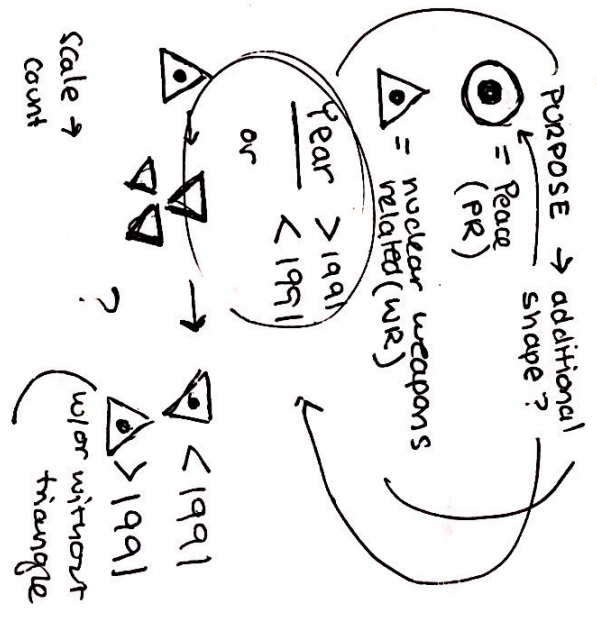 PURPOSE → additional
shape?
= Peace
(PR)
= nuclear weapons
related (WR)
Year >1991
or <1991
Scale →
count
?
<1991
>1991
w/or without
triangle